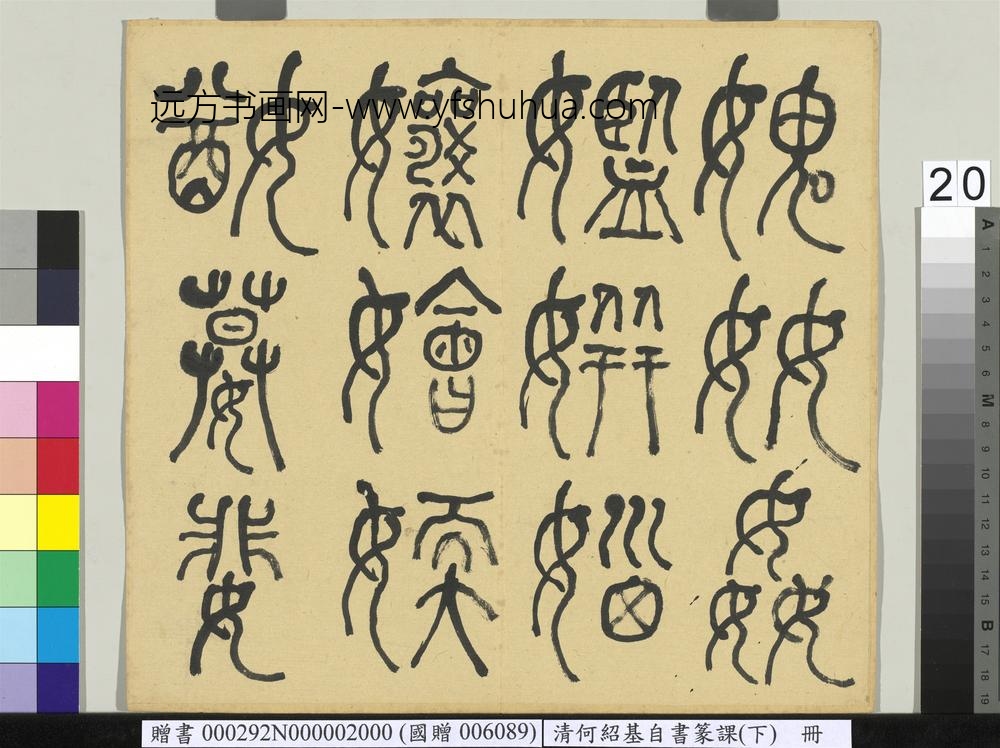 媿奻姦
㜮姘㛴
孃嬒媆
㜈婓
远方书画网-www.yfshuhua.com
20
A 1 2 3 4 5 6 M 8 9 10 11 12 13 14 15 B 17 18 19
贈書 000292N000002000 (國贈 006089) 清何紹基自書篆課(下) 冊